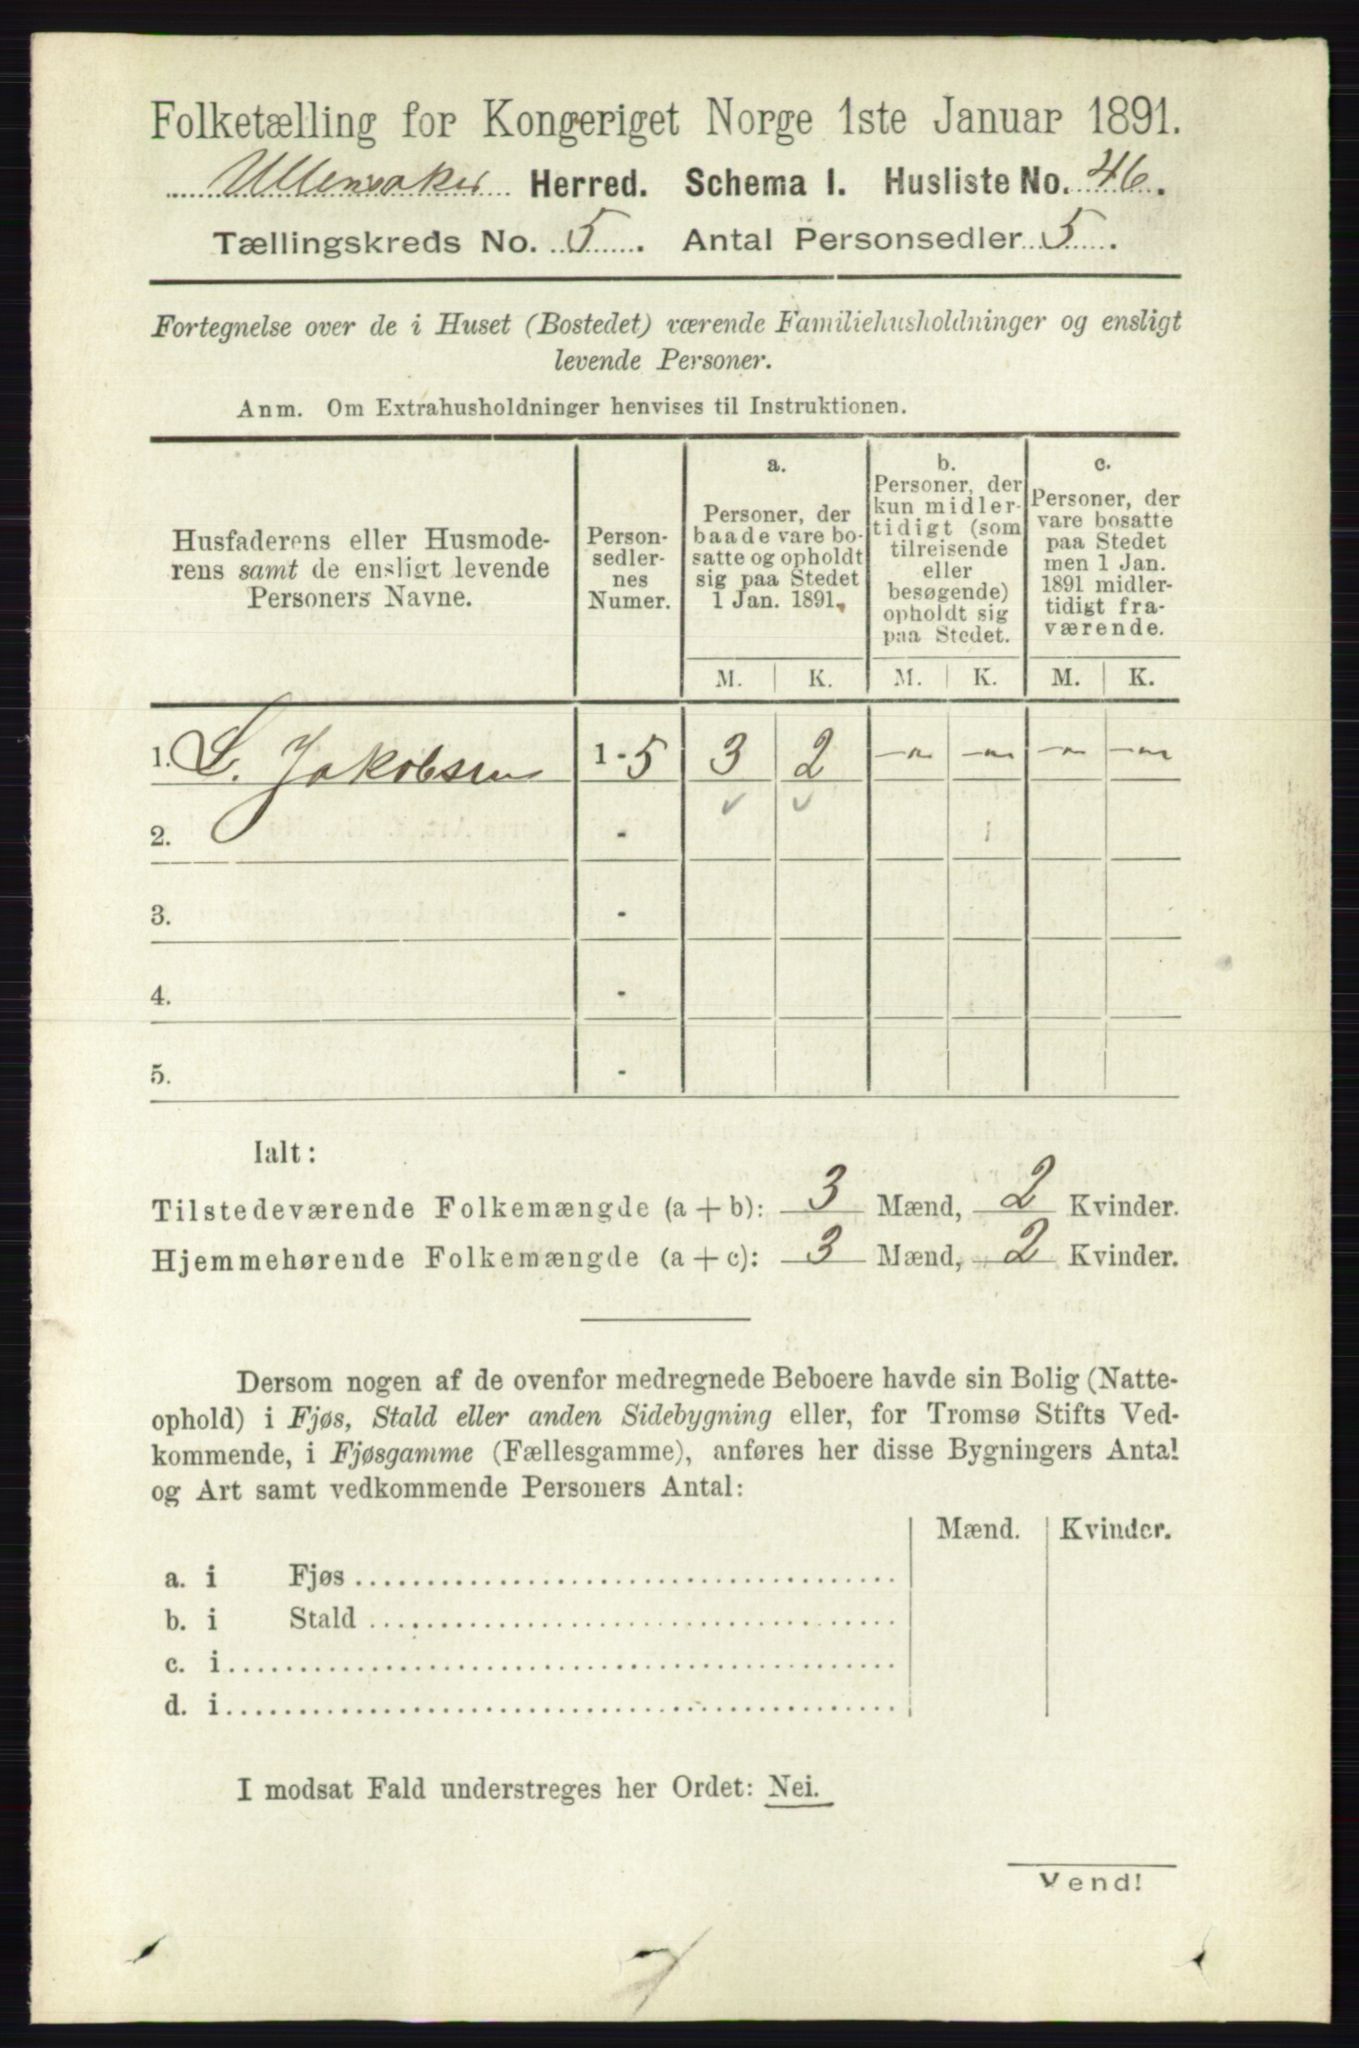 Folketælling for Kongeriget Norge 1ste Januar 1891.
Ullensaker Herred. Schema I. Husliste No. 46.
Tællingskreds No. 5. Antal Personsedler 5.
Fortegnelse over de i Huset (Bostedet) værende Familiehusholdninger og ensligt
levende Personer.
Anm. Om Extrahusholdninger henvises til Instruktionen.
Husfaderens eller Husmode-
rens samt de ensligt levende
Personers Navne.
Person-
sedler-
nes
Numer.
a.
Personer, der
baade vare bo-
satte og opholdt
sig paa Stedet
1 Jan. 1891.
b.
Personer, der
kun midler-
tidigt (som
tilreisende
eller
besøgende)
opholdt sig
paa Stedet.
c.
Personer, der
vare bosatte
paa Stedet
men 1 Jan.
1891 midler-
tidigt fra-
værende.
M. K. M. K. M. K.
1. L. Jakobsen 1 - 5 3 2 — — — —
2. -
3. -
4. -
5. -
Ialt:
Tilstedeværende Folkemængde (a + b): 3 Mænd, 2 Kvinder.
Hjemmehørende Folkemængde (a + c): 3 Mænd, 2 Kvinder.
Dersom nogen af de ovenfor medregnede Beboere havde sin Bolig (Natte-
ophold) i Fjøs, Stald eller anden Sidebygning eller, for Tromsø Stifts Ved-
kommende, i Fjøsgamme (Fællesgamme), anføres her disse Bygningers Antal
og Art samt vedkommende Personers Antal:
Mænd. Kvinder.
a. i Fjøs
b. i Stald
c. i
d. i
I modsat Fald understreges her Ordet: Nei.
Vend!